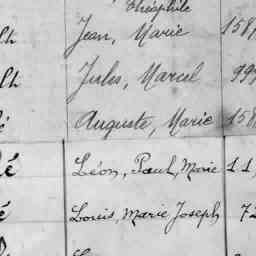 Théophile
lh Jean, Marie 158,
lh Jules, Marcel 999
é Auguste, Marie 158
é Léon, Paul, Marie 11,
é Louis, Marie Joseph 72